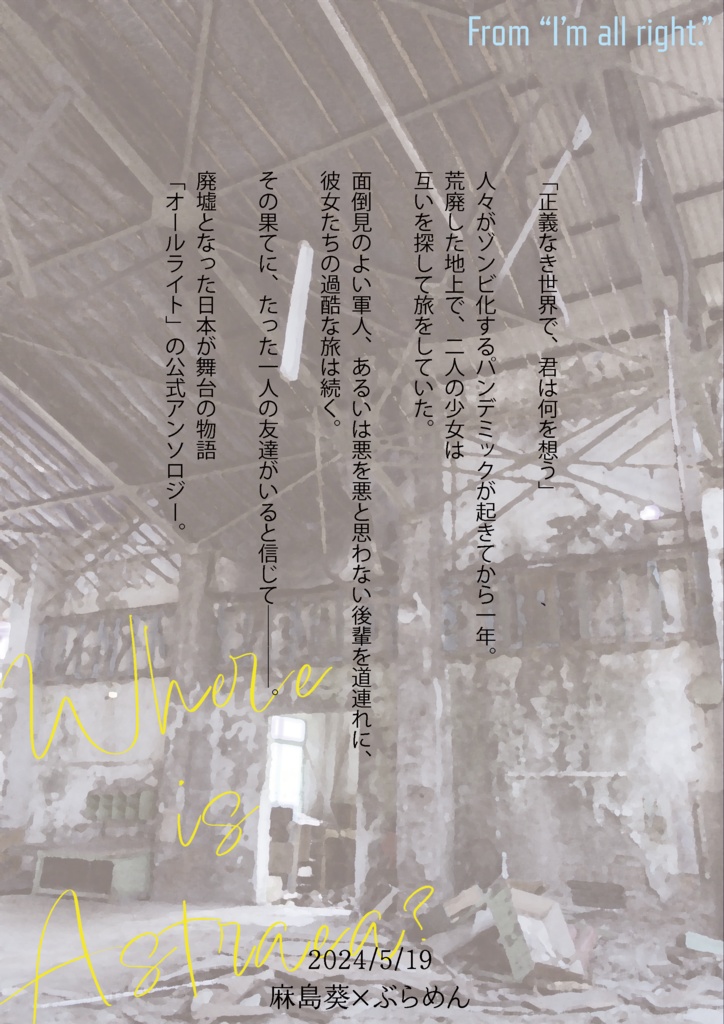 From “I’m all right.”
「正義なき世界で、君は何を想う」
人々がゾンビ化するパンデミックが起きてから一年。
荒廃した地上で、二人の少女は
互いを探して旅をしていた。
面倒見のよい軍人、あるいは悪を悪と思わない後輩を道連れに、
彼女たちの過酷な旅は続く。
その果てに、たった一人の友達がいると信じて―――。
廃墟となった日本が舞台の物語
「オールライト」の公式アンソロジー。
Where
is
Astraea?
2024/5/19
麻島葵×ぶらめん